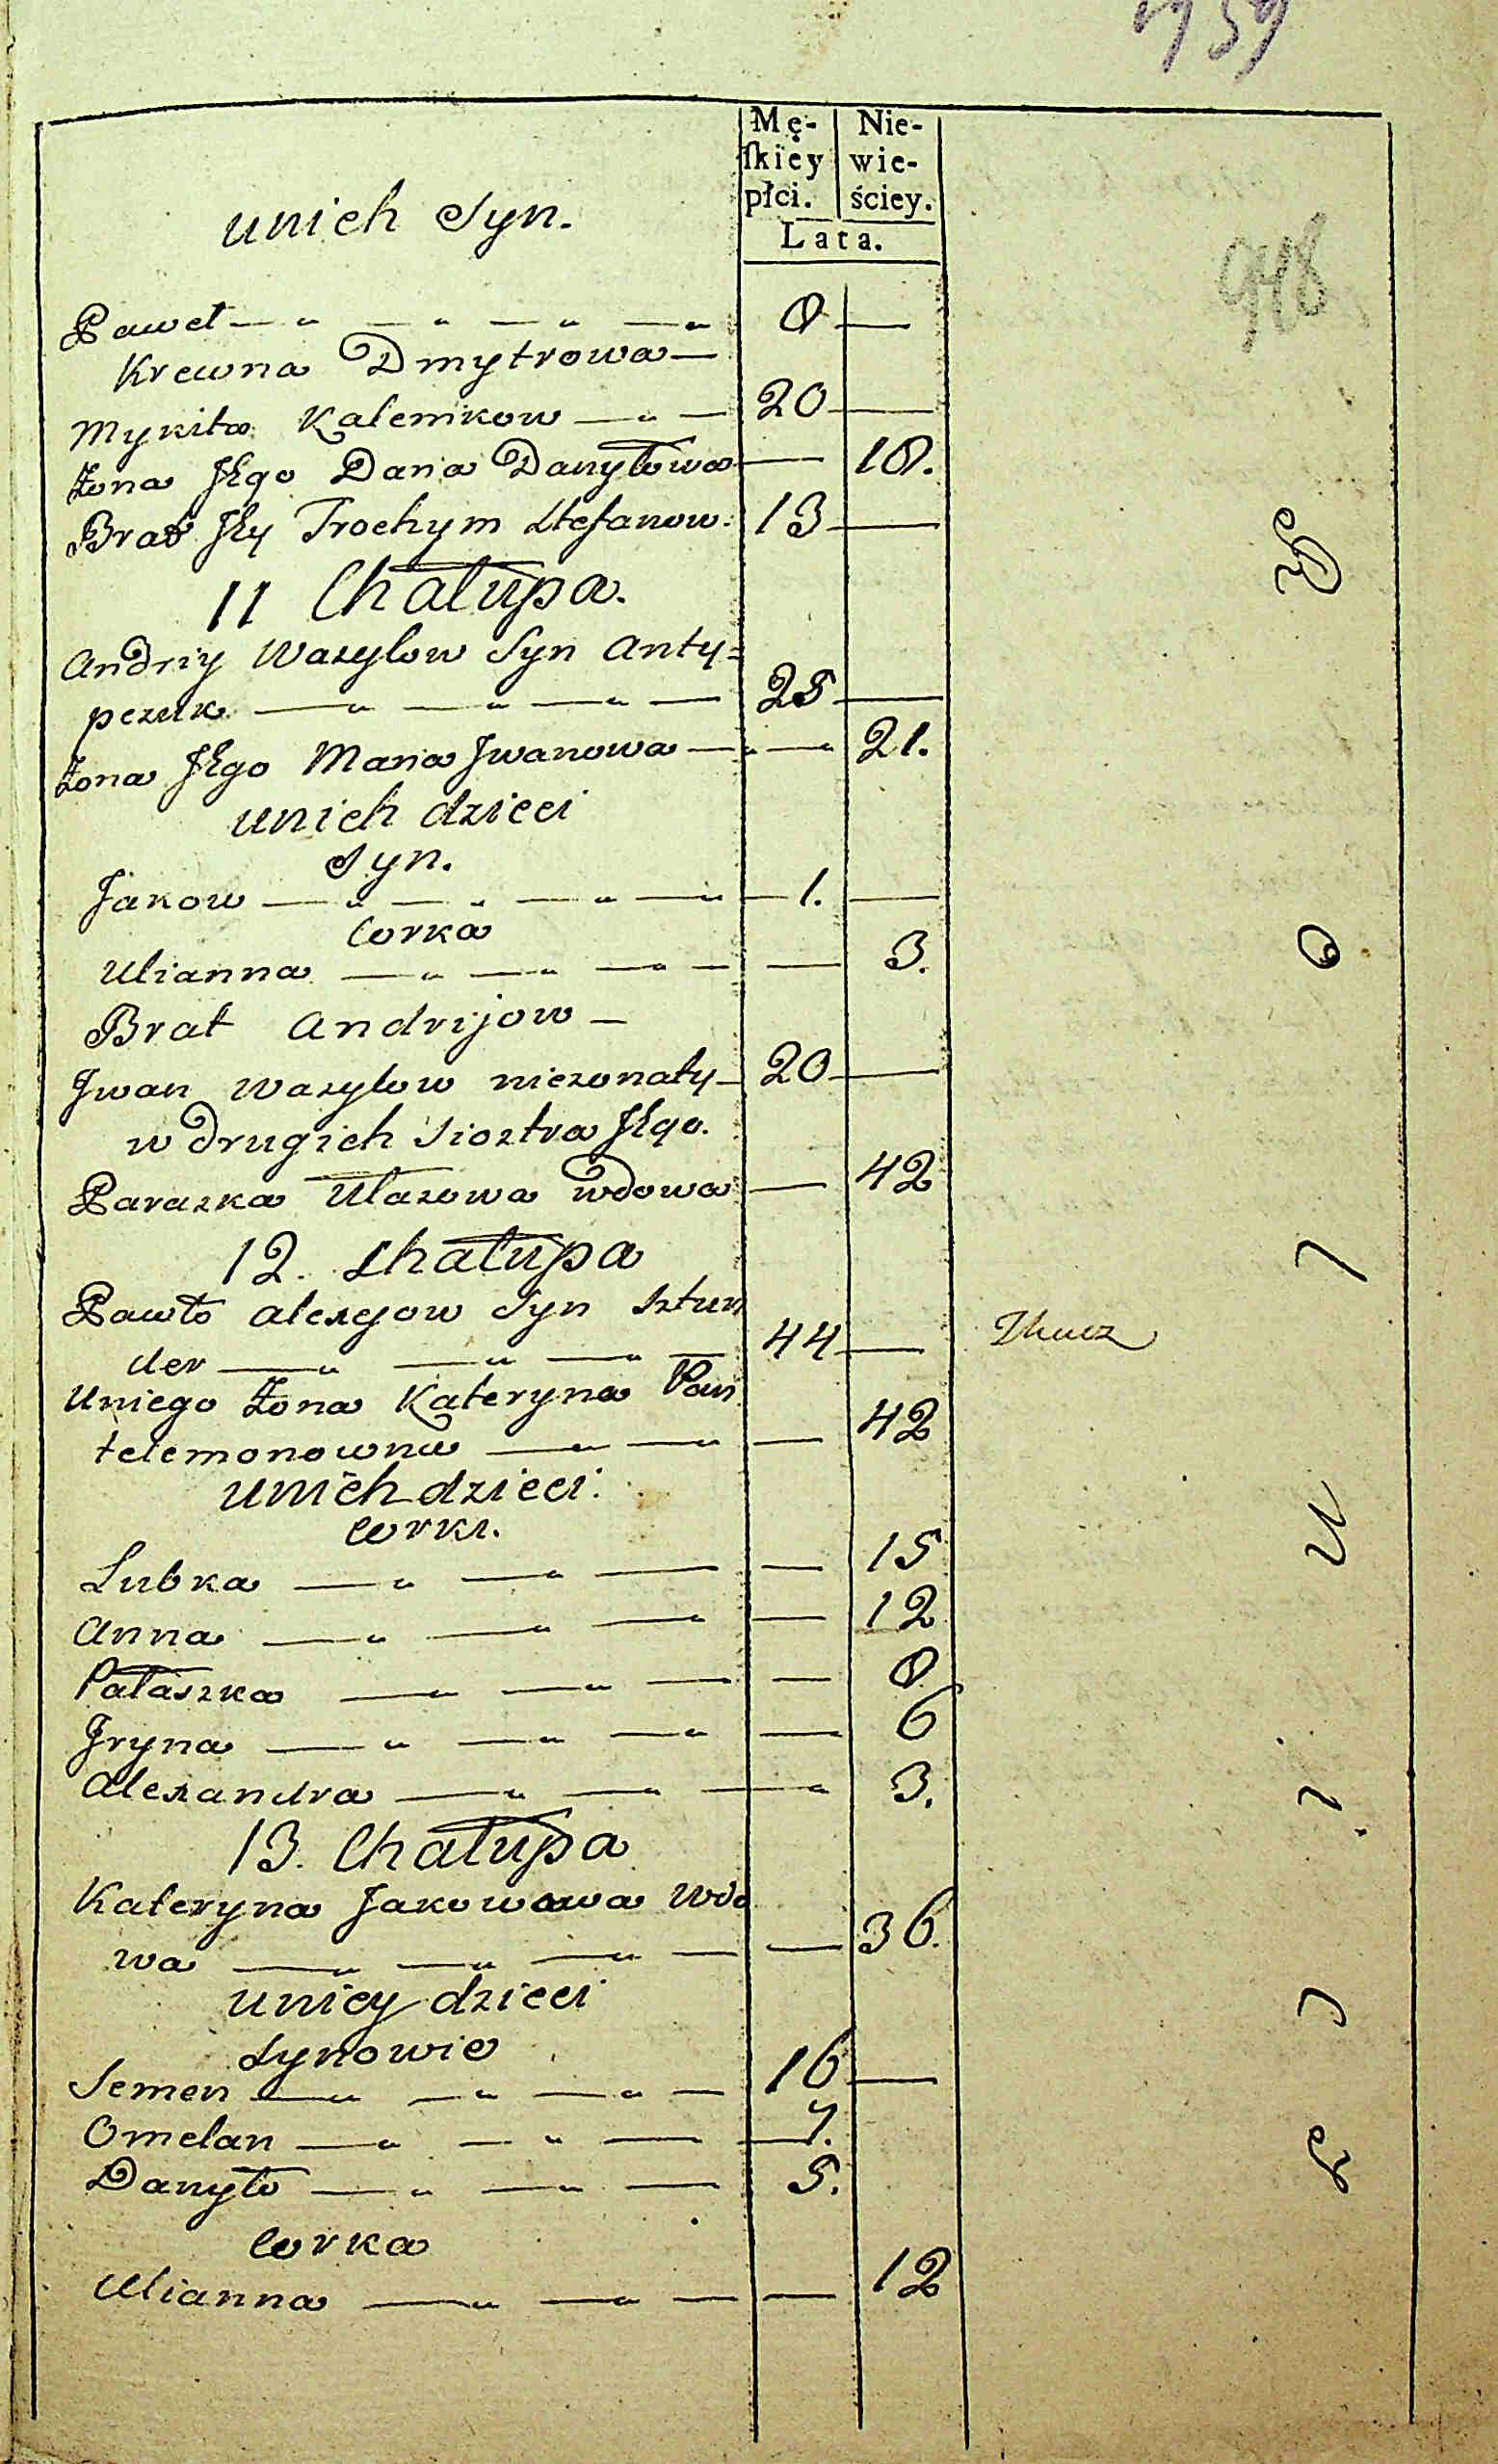 1959
Mę- Nie-
skiey wie-
płci. ściey.
Lata.
948
unich Syn.
Paweł — 8 —
Krewna Dmytrowa —
Mykita Kalenikow — 20 —
Żona Jego Daria Danyłowa — 18.
Brat Jey Trochym Stefanow. 13 —
11 Chałupa.
Andriy Wasylow Syn Anty=
pezuk — 25 —
Żona Jego Maria Jwanowa — 21.
unich dzieci
Syn.
Jakow — 1. —
Corka
Ulianna — 3.
Brat Andrijow —
Jwan Wasylow niezonaty — 20 —
w drugich Siostra Jego.
Paraska Ulasowa wdowa — 42
12. Chałupa
Pawło Alexejow Syn Sztun
der — 44 — Tkacz
Uniego Żona Kateryna Pan
telemonowna — 42
unich dzieci.
Corki.
Lubka — 15
Anna — 12
Pałaszka — 8
Jryna — 6
Alexandra — 3.
13. Chałupa
Kateryna Jakowowa Wdo
wa — 36.
uniey dzieci
Synowie
Semen — 16 —
Omelan — 7.
Danyło — 5.
Corka
Ulianna — 12